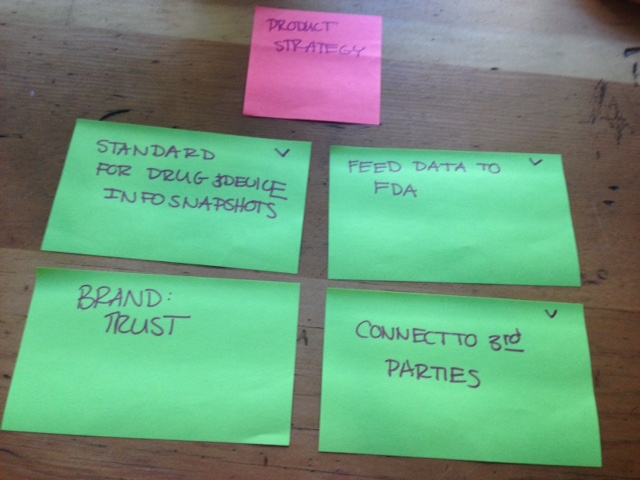 PRODUCT
STRATEGY
STANDARD
FOR DRUG & DEVICE
INFO SNAPSHOTS
FEED DATA TO
FDA
BRAND:
TRUST
CONNECT TO 3rd
PARTIES